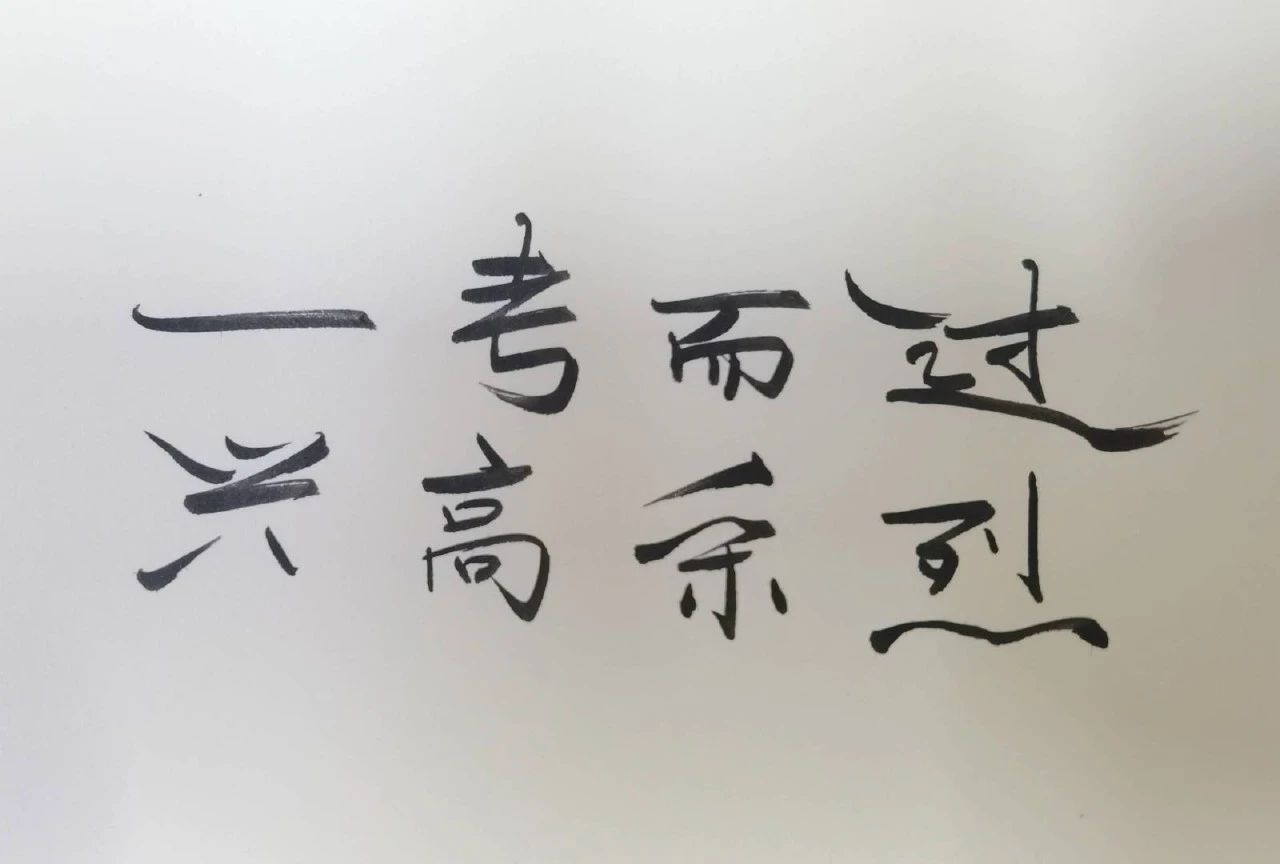 一考而过
兴高采烈